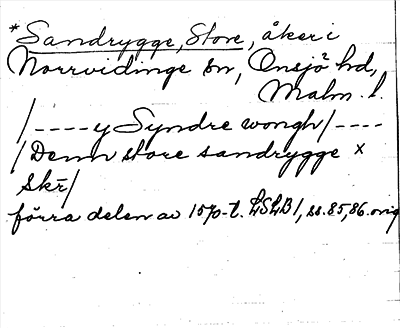 *Sandrygge, Store, åker i
Norrvidinge sn, Onsjö hd,
Malm. l.
/----y Syndre wongh/----
/Denn store sandrygge x
skr̄/
förra delen av 1570-t. LSLB1, ss. 85, 86. orig